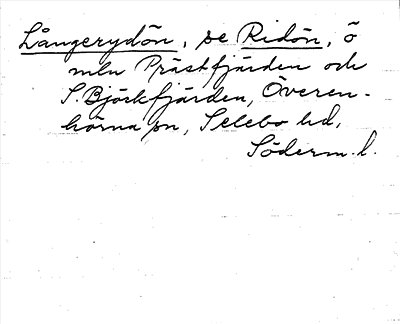 Långerydön, se Ridön, ö
mln Prästfjärden och
S. Björkfjärden, Överen-
hörna sn, Selebo hd,
Söderm. l.